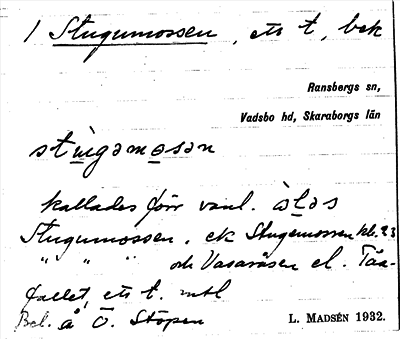 1 Stugumossen, ett t, bek
Ransbergs sn,
Vadsbo hd, Skaraborgs län
stu̇gəmosən
kallades förr vanl.
Stugumossen. ek Stugemossen kb. 23
" " " och Vasaråsen el.
fallet, ett t. mtl
Bel. å Ö. Stöpen
L. MADSÉN 1932.